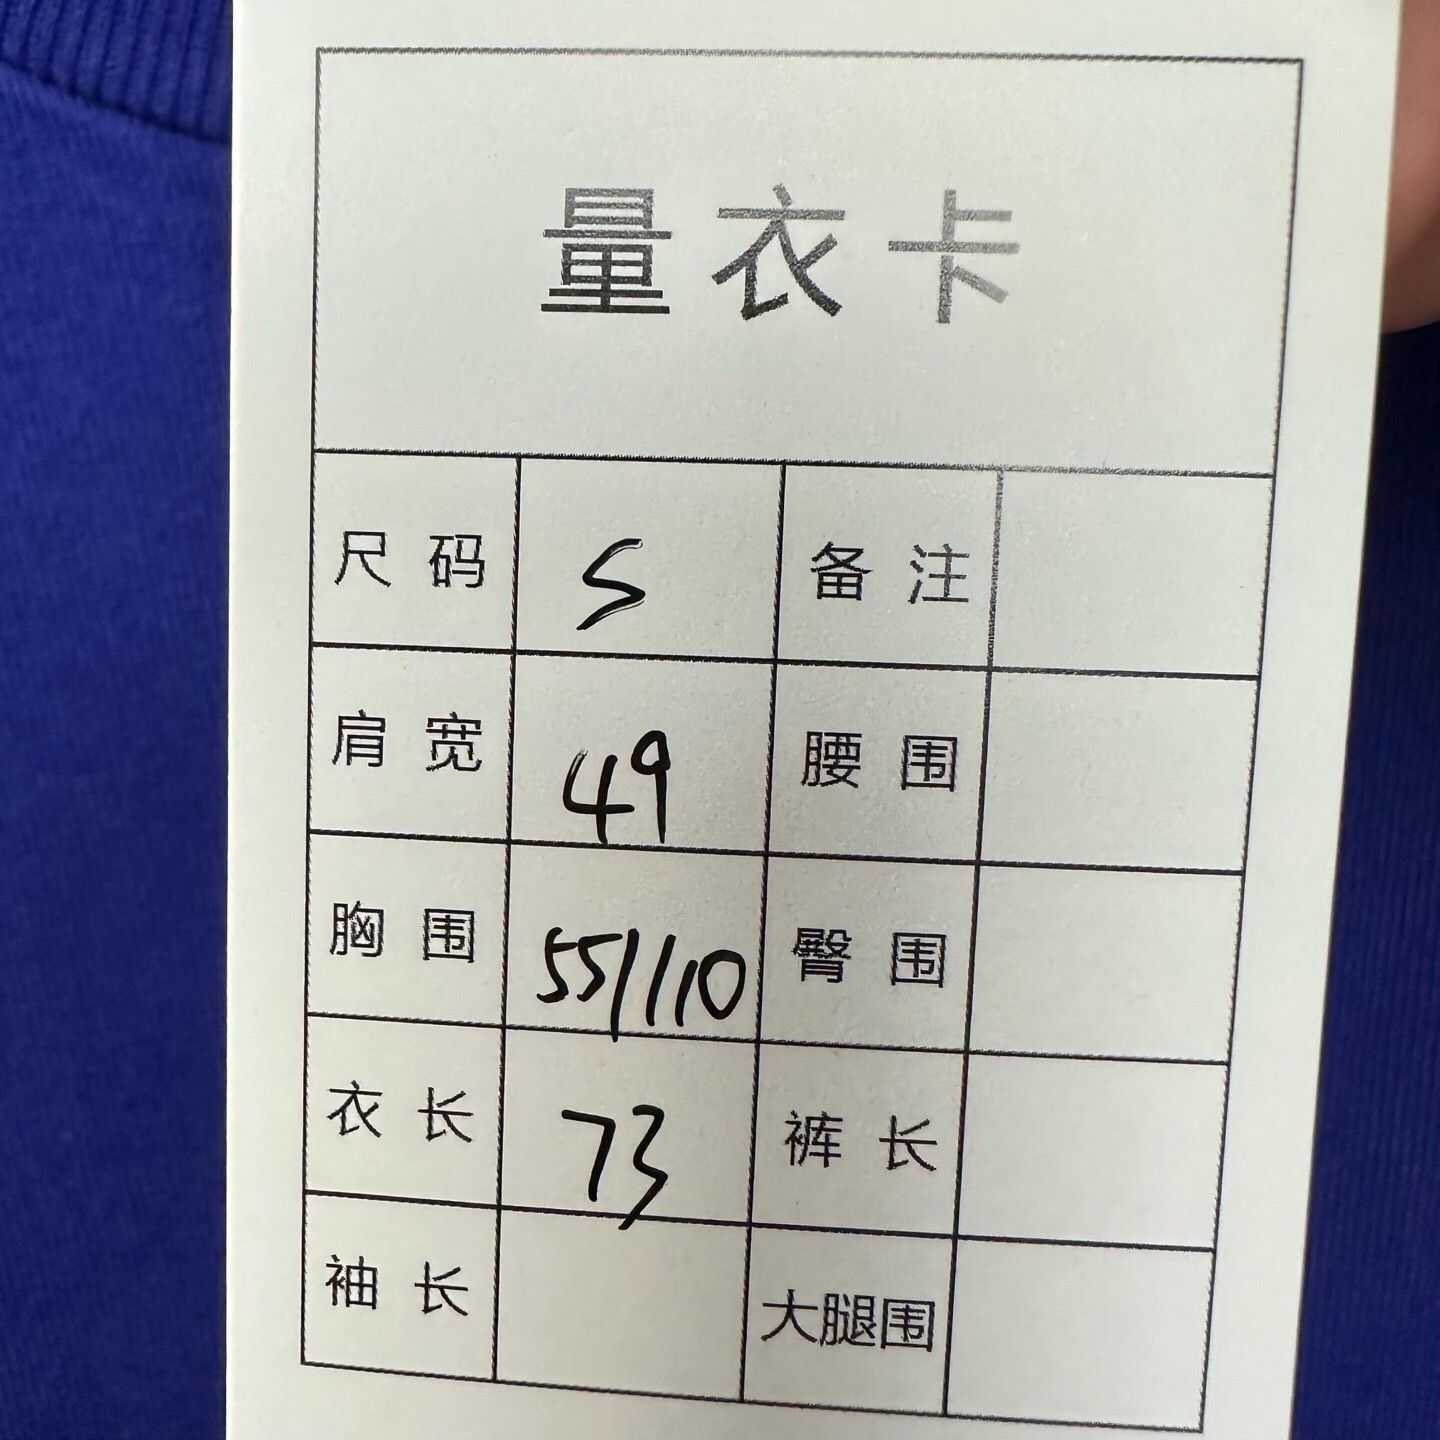 量衣卡
尺码 S 备注
肩宽 49 腰围
胸围 55/110 臀围
衣长 73 裤长
袖长 大腿围